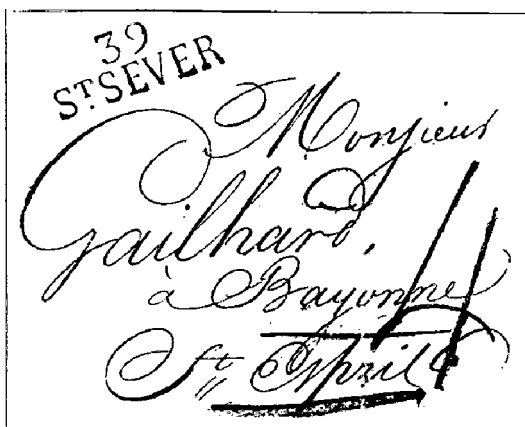 39
ST SEVER
Monsieur
Gailhard,
à Bayonne
St Esprit
4